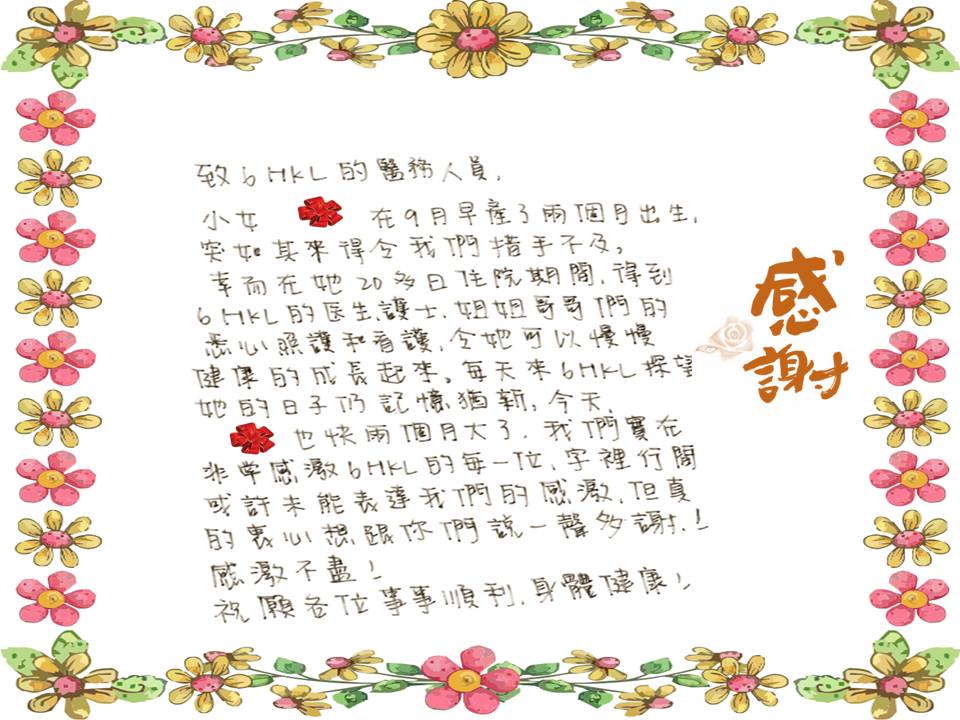 致6HKL的醫務人員,
小女 在9月早產了兩個月出生,
突如其來得令我們措手不及。
幸而在她20多日住院期間,得到
6HKL的医生護士,姐姐哥哥們的
悉心照護和看護,令她可以慢慢
健康的成長起來。每天來6HKL探望
她的日子仍記憶猶新,今天,
也快兩個月大了,我們實在
非常感激6HKL的每一位,字裡行間
或許未能表達我們的感激,但真
的衷心想跟你們說一聲多謝!
感激不盡!
祝願各位事事順利,身體健康!
感謝